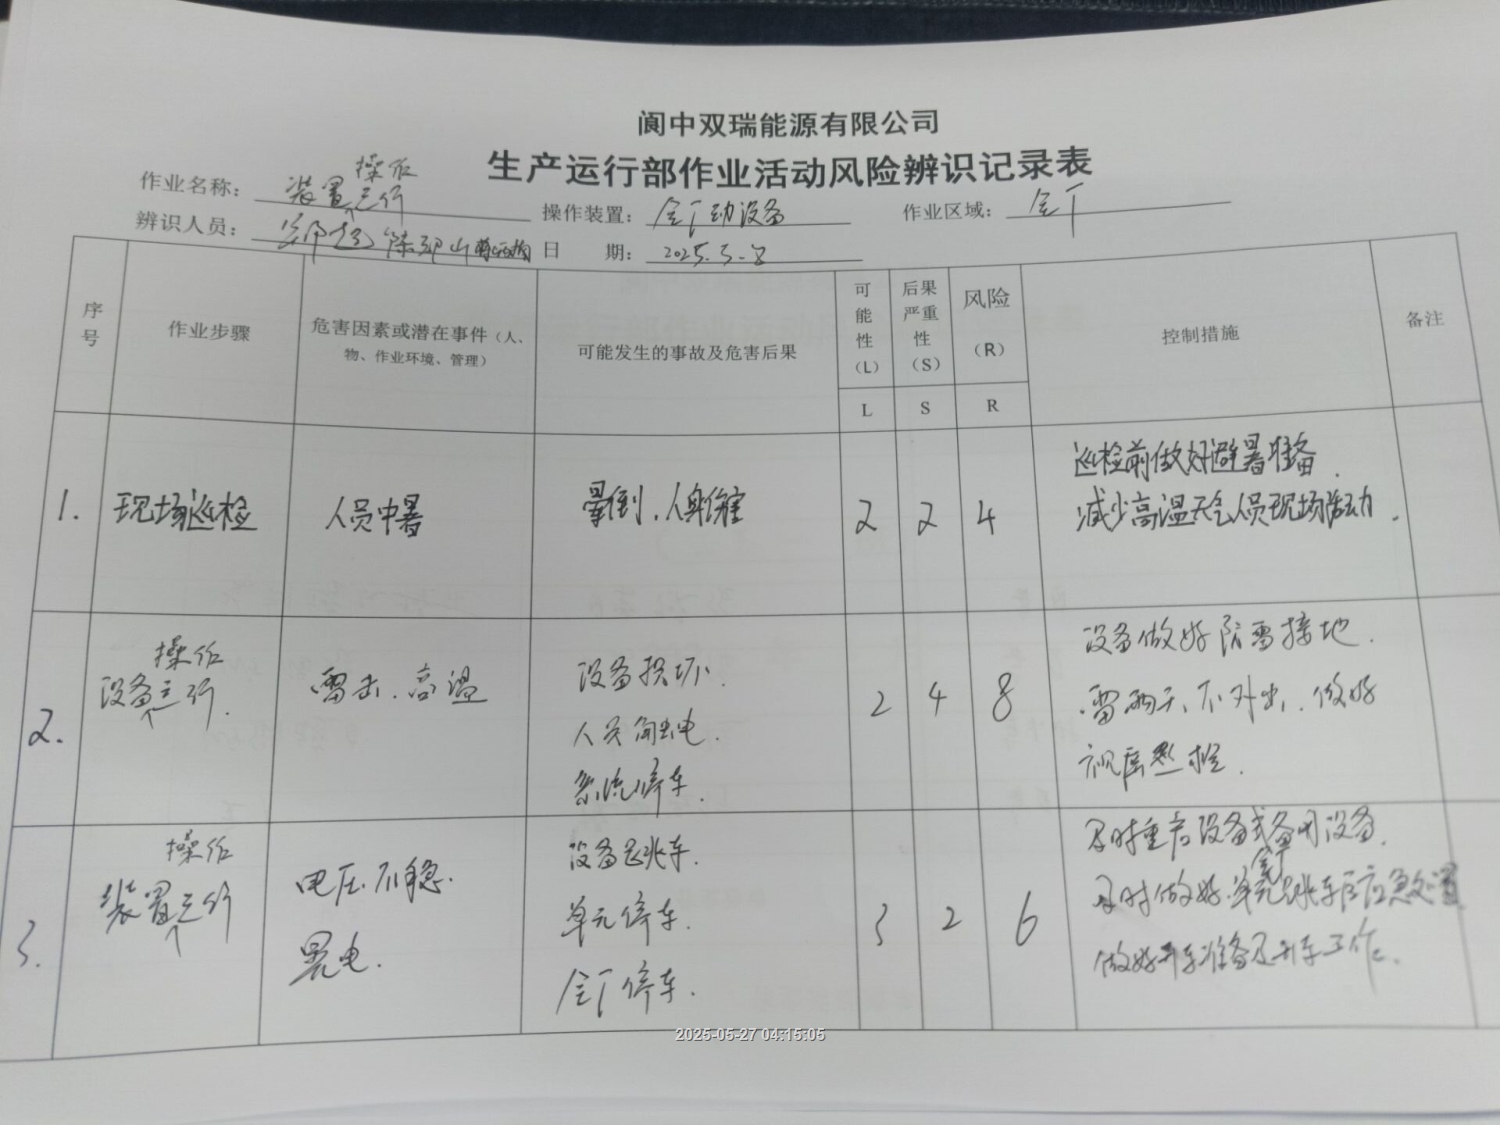 阆中双瑞能源有限公司
生产运行部作业活动风险辨识记录表
作业名称： 装置操作运行 操作装置： 全厂动设备 作业区域： 全厂
辨识人员： 日 期： 2025.5-8
序号 作业步骤 危害因素或潜在事件（人、物、作业环境、管理） 可能发生的事故及危害后果 可能性（L） 后果严重性（S） 风险（R） 控制措施 备注
L S R
1. 现场巡检 人员中暑 晕倒、人身伤害 2 2 4 巡检前做好避暑准备、
减少高温天气人员现场活动.
2. 设备操作运行. 雷击、高温 设备损坏、 2 4 8 设备做好防雷接地.
人员触电. 雷雨天、不外出、做好
系统停车. 巡检.
3. 装置操作运行 电压不稳. 设备跳车. 3 2 6 及时重启设备或备用设备.
晃电. 单元停车. 及时做好单元跳车后应急处置
全厂停车. 做好开车准备及开车工作.
2025-05-27 04:15:05